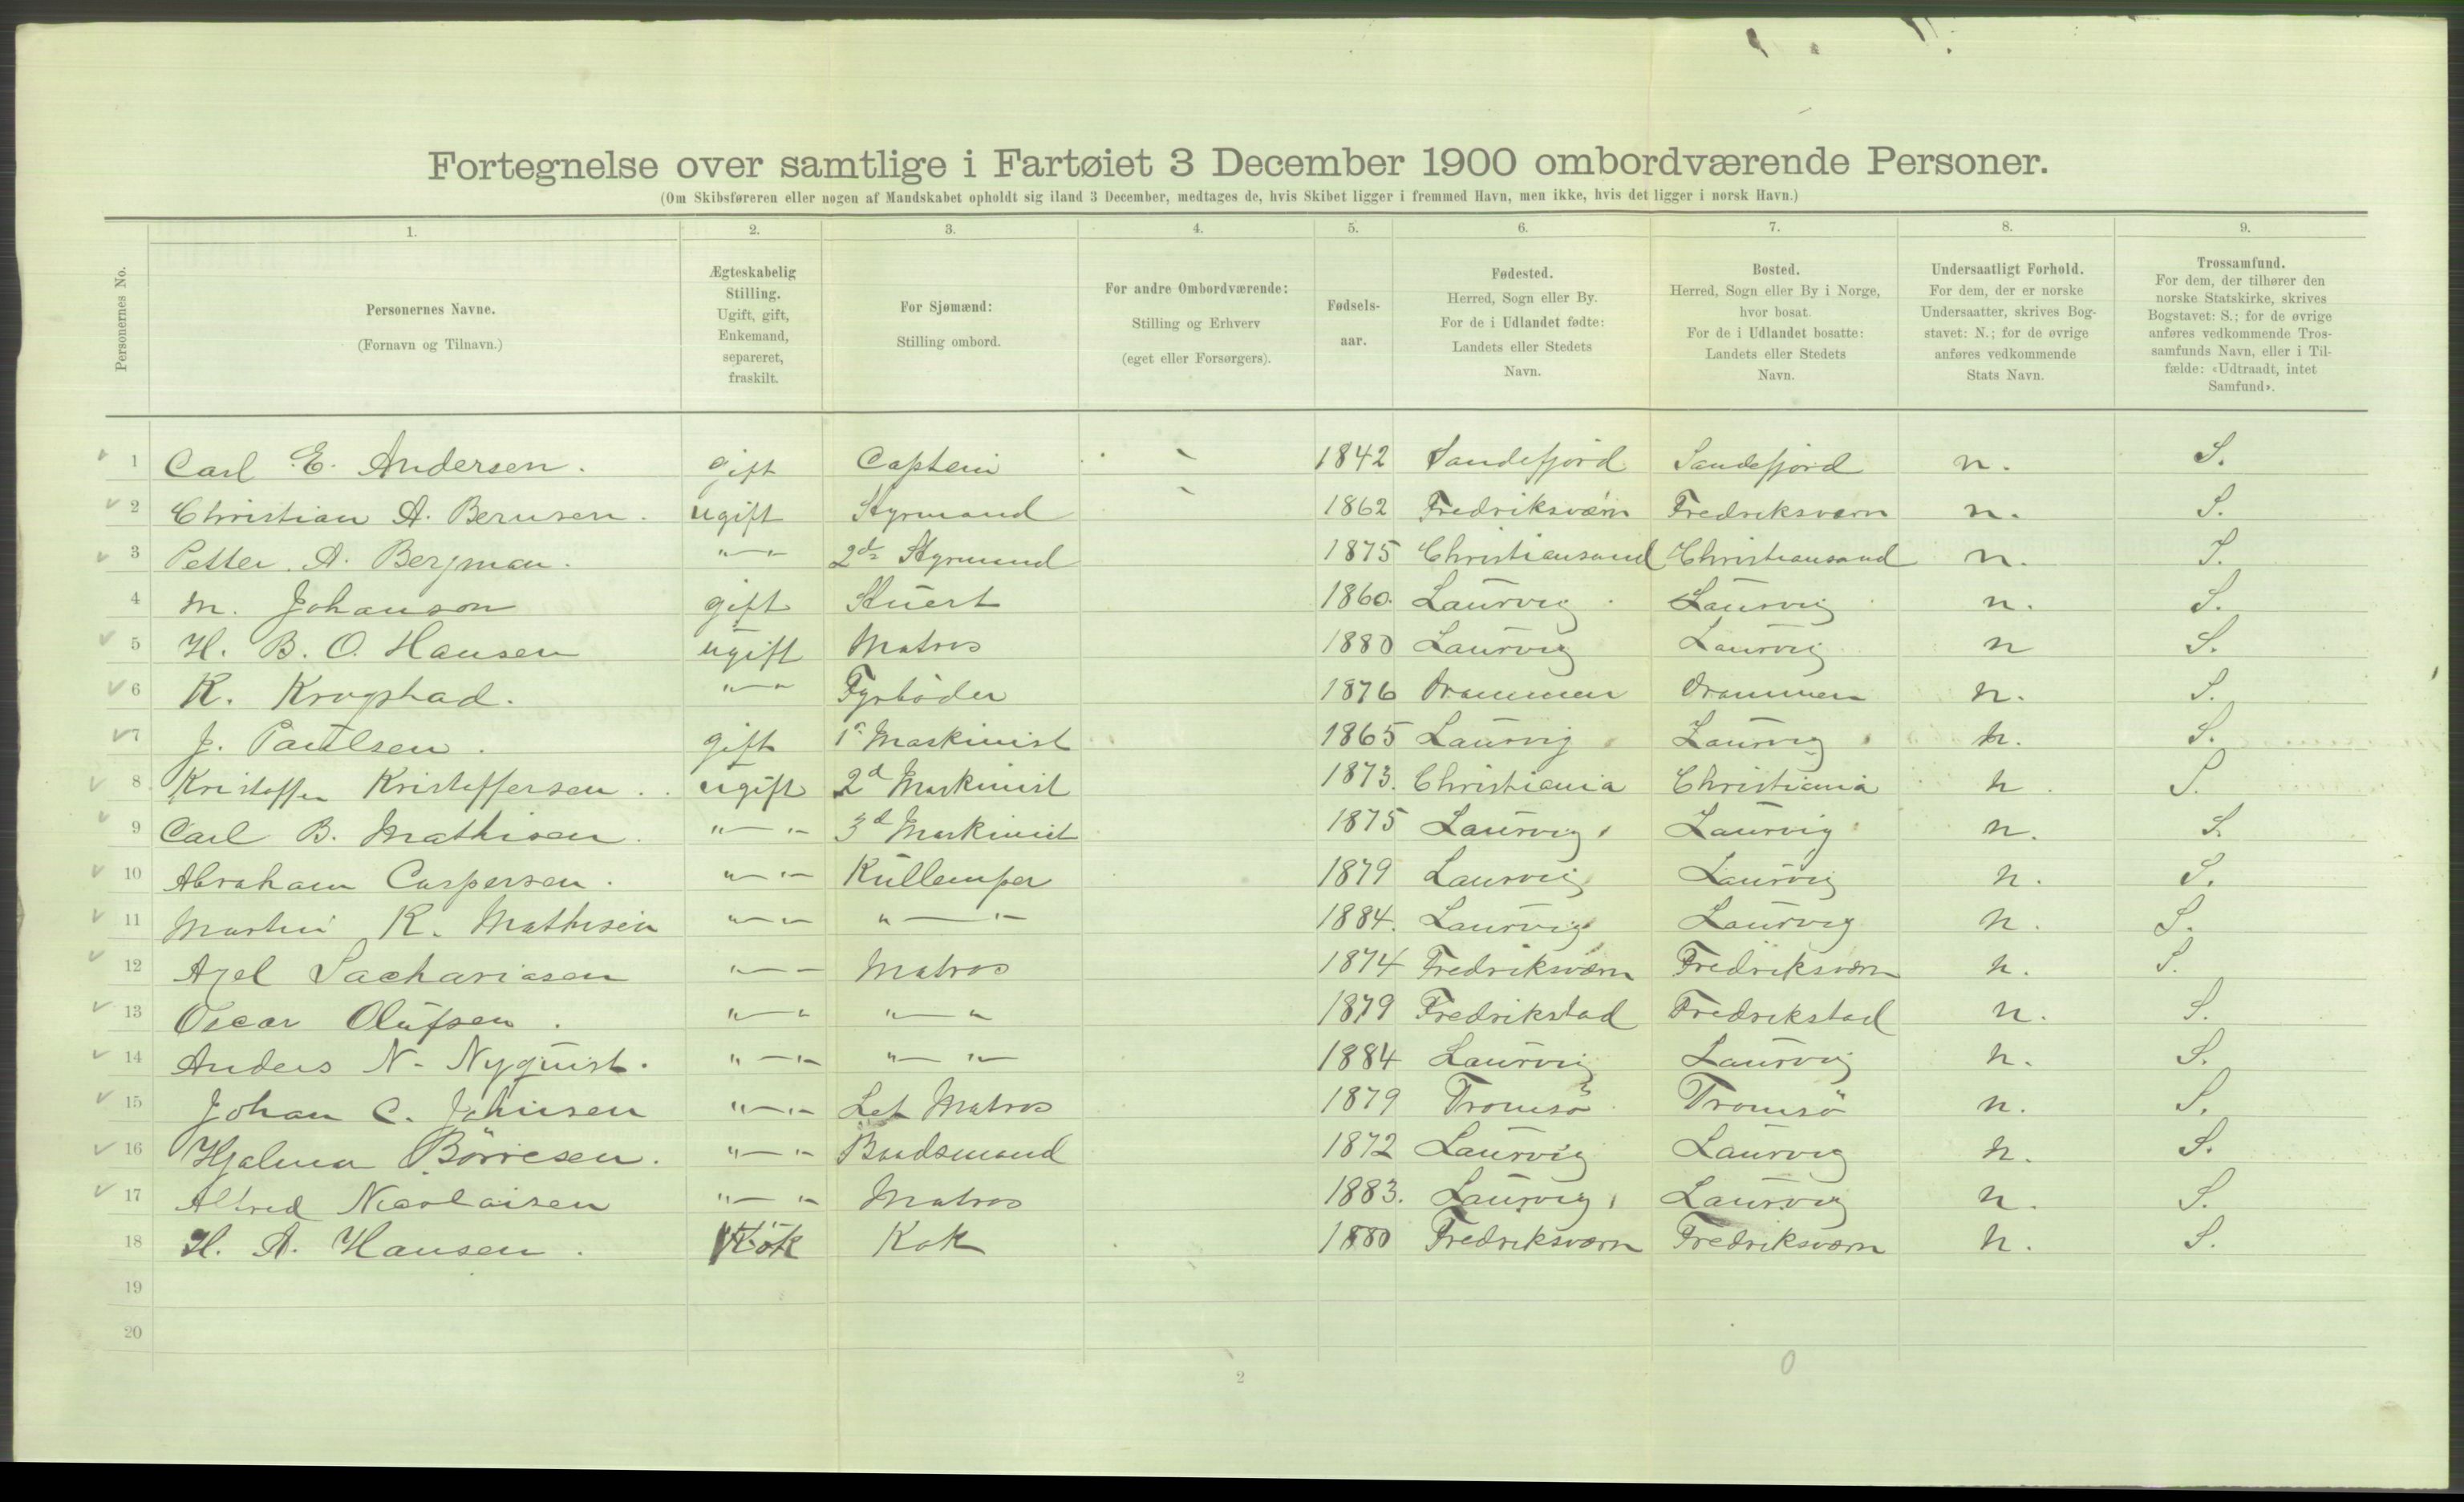 Fortegnelse over samtlige i Fartøiet 3 December 1900 ombordværende Personer.
(Om Skibsføreren eller nogen af Mandskabet opholdt sig iland 3 December, medtages de, hvis Skibet ligger i fremmed Havn, men ikke, hvis det ligger i norsk Havn.)
1. 2. 3. 4. 5. 6. 7. 8. 9.
Personernes No.
Personernes Navne.
(Fornavn og Tilnavn.)
Ægteskabelig
Stilling.
Ugift, gift,
Enkemand,
separeret,
fraskilt.
For Sjømænd:
Stilling ombord.
For andre Ombordværende:
Stilling og Erhverv
(eget eller Forsørgers).
Fødsels-
aar.
Fødested.
Herred, Sogn eller By.
For de i Udlandet fødte:
Landets eller Stedets
Navn.
Bosted.
Herred, Sogn eller By i Norge,
hvor bosat.
For de i Udlandet bosatte:
Landets eller Stedets
Navn.
Undersaatligt Forhold.
For dem, der er norske
Undersaatter, skrives Bog-
stavet: N.; for de øvrige
anføres vedkommende
Stats Navn.
Trossamfund.
For dem, der tilhører den
norske Statskirke, skrives
Bogstavet: S.; for de øvrige
anføres vedkommende Tros-
samfunds Navn, eller i Til-
fælde: «Udtraadt, intet
Samfund».
1 Carl E. Andersen. gift Captein 1842 Sandefjord Sandefjord n. S.
2 Christian A. Berusen. ugift Styrmand 1862 Fredriksværn Fredriksværn n. S.
3 Petter A. Bergman. "—"— 2d Styrmand 1875 Christiansand Christiansand n. S.
4 M. Johanson gift Stuert 1860. Laurvig Laurvig n. S.
5 H. B. O. Hansen ugift Matros 1880 Laurvig Laurvig n S.
6 K. Krogstad. "—" Fyrböder 1876 Drammen Drammen n. S.
7 J. Paulsen. gift 1s Maskinist 1865 Laurvig Laurvig n. S.
8 Kristoffer Kristoffersen. ugift 2d Maskinist 1873. Christiania Christiania n. S.
9 Carl B. Mathisen. "—"— 3d Maskinist 1875 Laurvig Laurvig n. S.
10 Abraham Caspersen. "—"— Kullemper 1879 Laurvig Laurvig n. S.
11 Martin K. Mathisen "—"— "—"— 1884. Laurvig Laurvig n. S.
12 Axel Sachariasen "—"— Matros 1874 Fredriksværn Fredriksværn n. S.
13 Oscar Olufsen. "—" "—" 1879 Fredrikstad Fredrikstad n. S.
14 Anders N. Nyquist. "—"— "—"— 1884 Laurvig Laurvig n. S.
15 Johan C. Johnsen "—"— Let Matros 1879 Tromsö Tromsö n. S.
16 Hjalmar Börresen. "—"— Baadsmand 1872 Laurvig Laurvig n. S.
17 Alfred Nicolaisen "—"— Matros 1883. Laurvig Laurvig n. S.
18 H. A. Hansen. Kok Kok 1880 Fredriksværn Fredriksværn n. S.
19
20
2
0